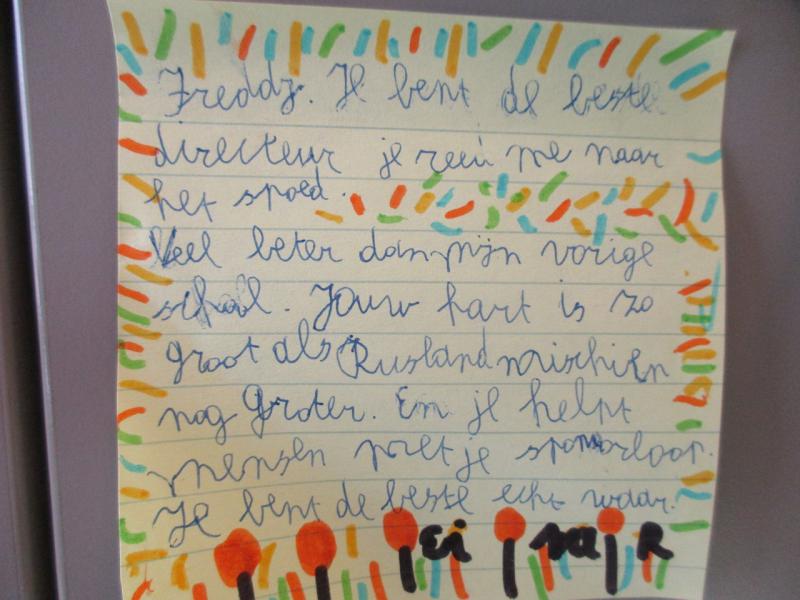 Freddy. Je bent de beste
directeur je reed me naar
het spoed.
Veel beter dan mijn vorige
school. Jouw hart is zo
groot als Rusland mischien
nog groter. En je helpt
mensen met je sponsorloop.
Je bent de beste echt waar.